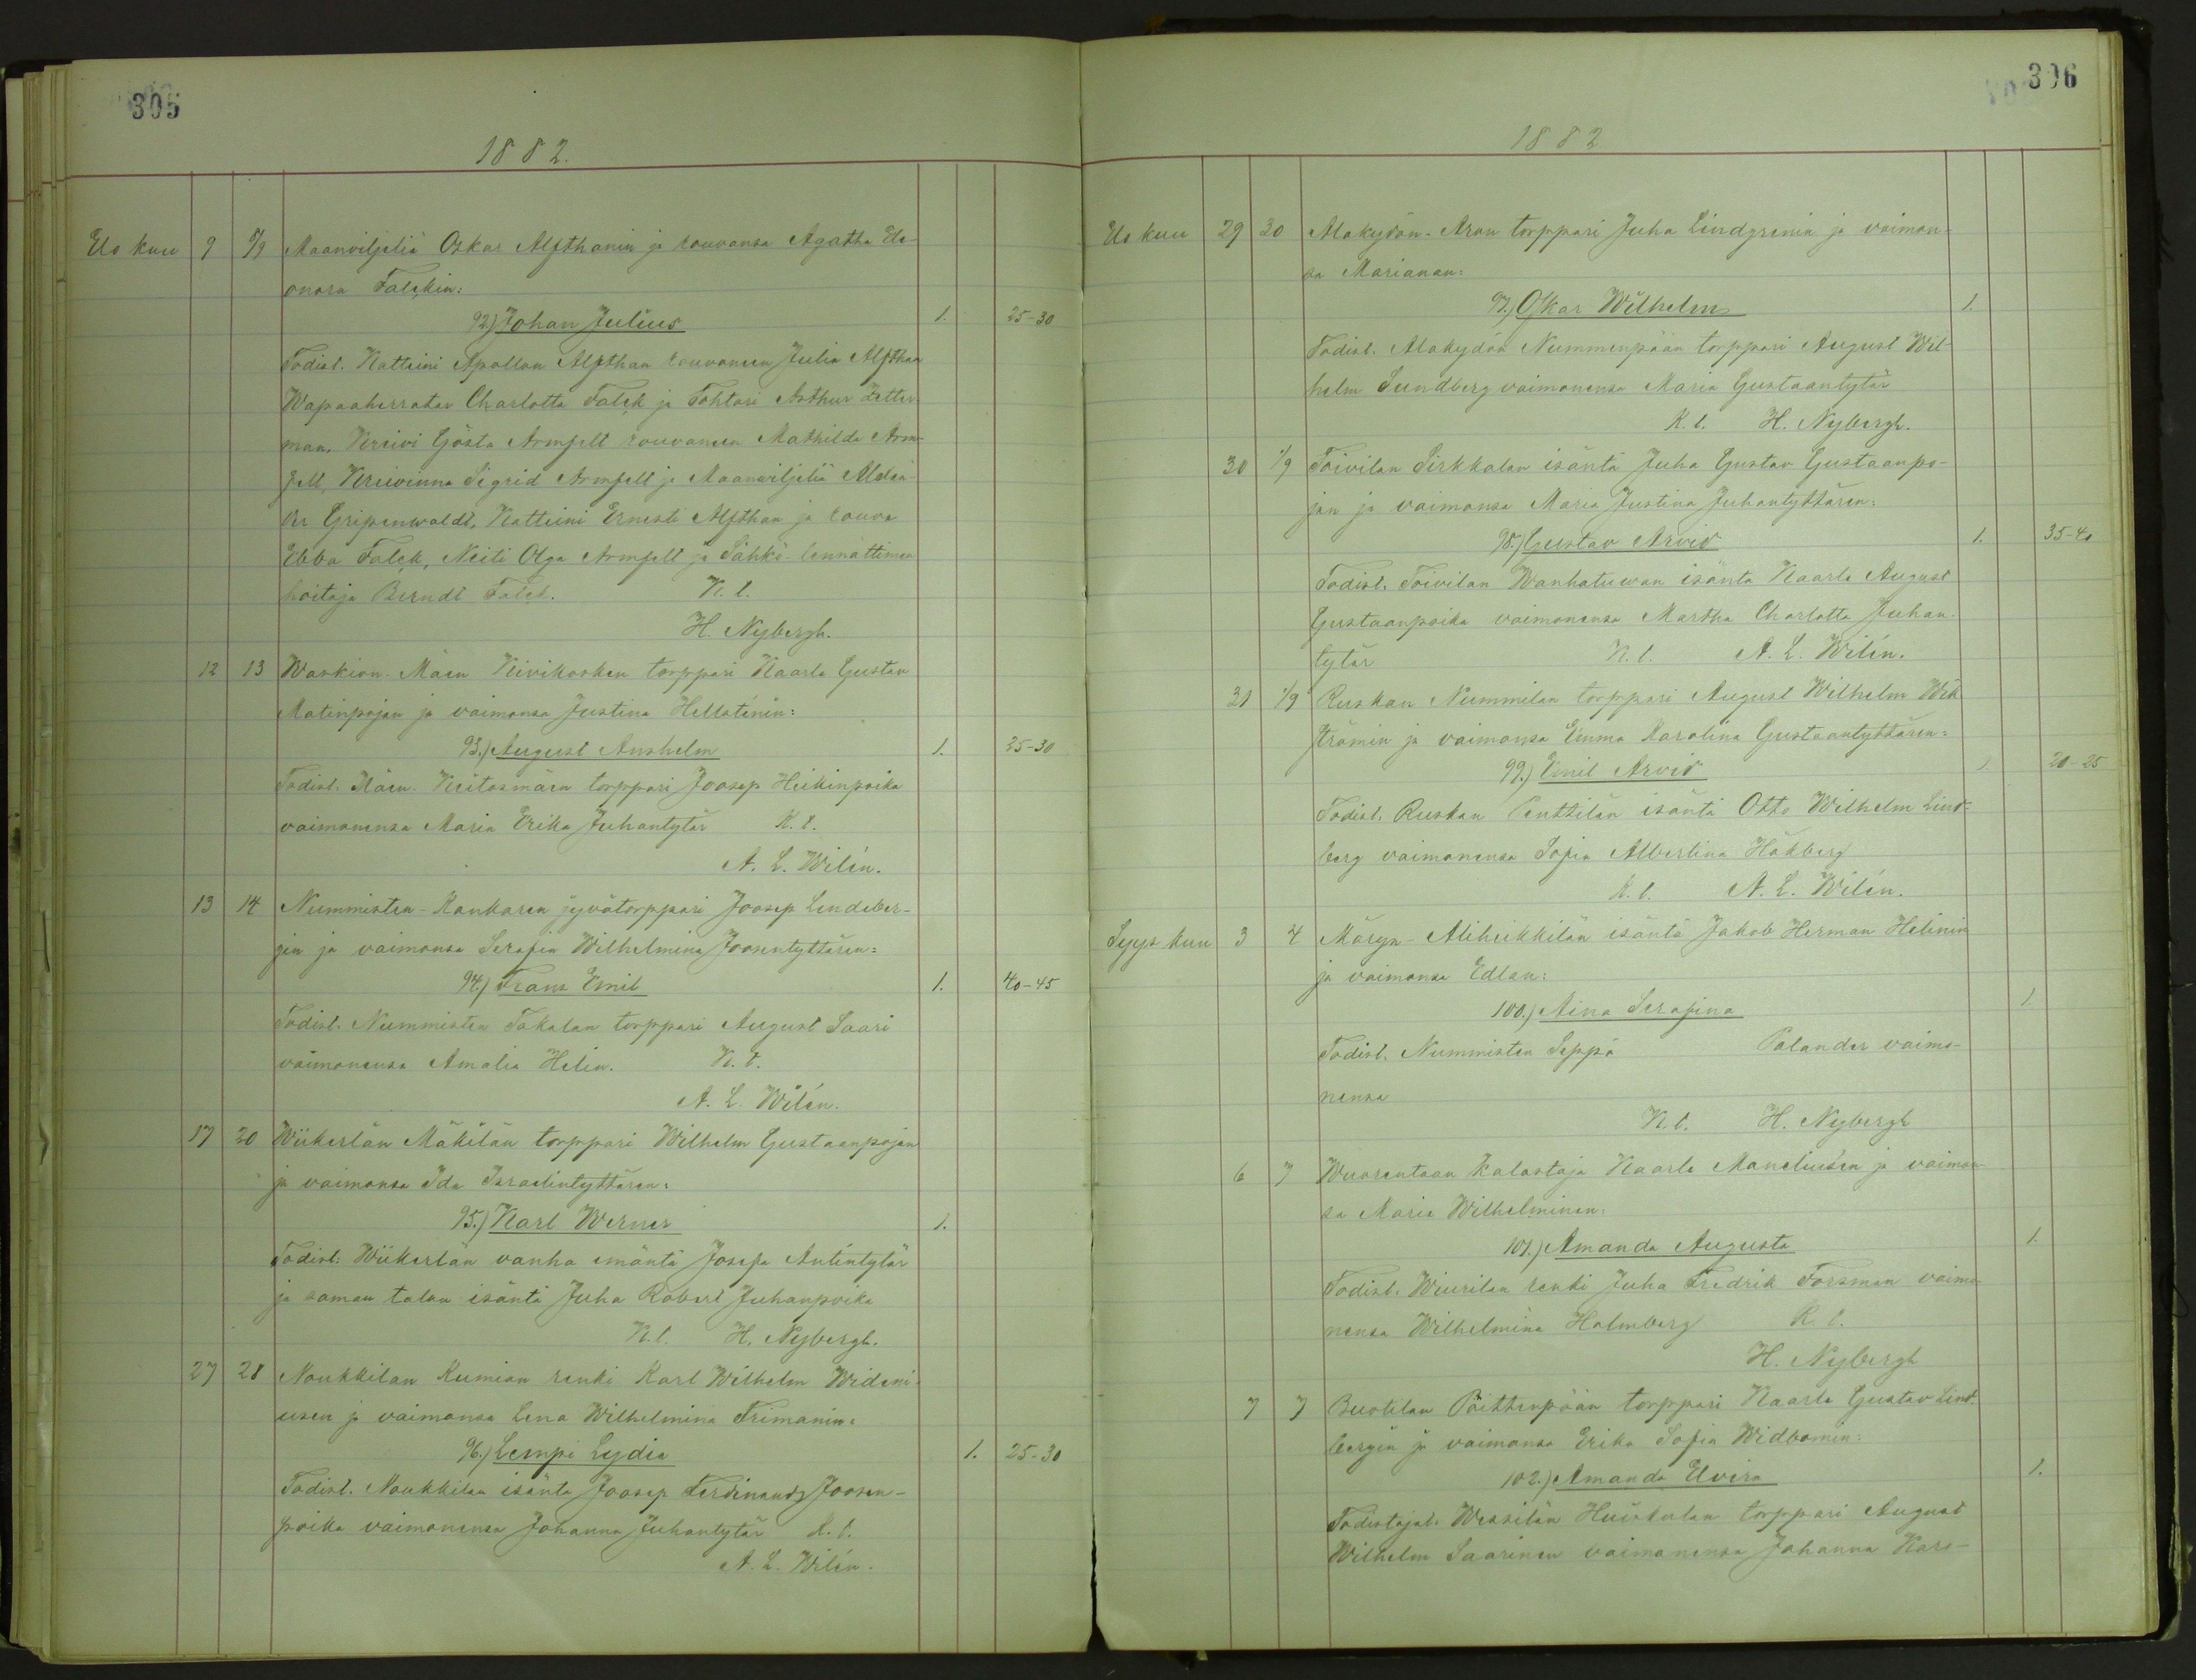 305
1882.
Elo kuu 9 5/9 Maanviljeliä Oskar Alfthanin ja rouvansa Agatha Ele-
onora Falckin:
92.) Johan Julius 1. 25-30
Todist. Katteini Apollon Alfthan rouvaneen Julia Alfthan
Wapaaherratar Charlotta Falck ja Tohtori Arthur Zetter-
man, Kreivi Gösta Armfelt rouvaneen Mathilda Arm-
felt, Kreivinna Sigrid Armfelt ja Maanviljeliä
Gripenwaldt, Katteini Ernesti Alfthan ja rouva
Ebba Falck, Neiti Olga Armfelt ja Sähkö-lennättimen
hoitaja Berndt Falck. K. l.
H. Nybergh.
12 13 Waskion-Mäen Kivikosken torppari Kaarle Gustav
Matinpojan ja vaimonsa Justina Hellsténin:
93.) August Anshelm 1. 25-30
Todist. Mäen torppari Joosep Heikinpoika
vaimonensa Maria Erika Juhantytär K. l.
A. L. Wilén.
13 14 Nummisten-Kankaren jyvätorppari Joosep Lindeber-
gin ja vaimonsa Serafia Wilhelmina Joosentyttären:
94.) Frans Emil 1. 40-45
Todist. Nummisten Takalan torppari August Saari
vaimonensa Amalia Helin. K. l.
A. L. Wilén.
17 20 Wiikerlän Mäkilän torppari Wilhelm Gustaanpojan
ja vaimonsa Ida Israelintyttären:
95.) Karl Werner 1.
Todist: Wiikerlän vanha emäntä Josefa Antintytär
ja saman talon isäntä Juha Robert Juhanpoika
K. l. H. Nybergh.
27 28 Naukkilan Kumian renki Karl Wilhelm Wideni-
usen ja vaimonsa Lena Wilhelmina Frimanin:
96.) Lempi Lydia 1. 25-30
Todist. Naukkilan isäntä Joosep Ferdinand Joosen-
poika vaimonensa Johanna Juhantytär K. l.
A. L. Wilén.
306
1882
Elo kuu 29 30 Alakydön-Aron torppari Juha Lindgrenin ja vaimon-
sa Marianan:
97.) Oskar Wilhelm 1.
Todist. Alakydön Nummenpään torppari August Wil-
helm Sundberg vaimonensa Maria Gustaantytär
K. l. H. Nybergh.
30 1/9 Toivilan Sirkkalan isäntä Juha Gustav Gustaanpo-
jan ja vaimonsa Maria Justina Juhantyttären:
98.) Gustav Arvid 1. 35-40
Todist. Toivilan Wanhatuvan isäntä Kaarle August
Gustaanpoika vaimonensa Martha Charlotta Juhan-
tytär K. l. A. L. Wilén.
31 1/9 Ruskan Nummilan torppari August Wilhelm Wik-
strömin ja vaimonsa Emma Karolina Gustaantyttären:
99.) Emil Arvid 1. 20-25
Todist. Ruskan Penttilän isäntä Otto Wilhelm Lind-
berg vaimonensa Sofia Albertina Hökberg
K. l. A. L. Wilén.
Syys kuu 3 4 Märyn-Aliheikkilän isäntä Jakob Herman Helinin
ja vaimonsa Edlan:
100.) Aina Serafina 1.
Todist. Nummisten Seppä Palander vaimo-
nensa
K. l. H. Nybergh
6 7 Wuorentaan kalastaja Kaarle Maneliusen ja vaimon-
sa Maria Wilhelminan:
101.) Amanda Augusta 1.
Todist. Wiurilan renki Juha Fredrik Forsman vaimo-
nensa Wilhelmina Holmberg K. l.
H. Nybergh
7 7 Buotilan Päittenpään torppari Kaarle Gustav Lind-
bergin ja vaimonsa Erika Sofia Widbomin:
102.) Amanda Elvira 1.
Todistajat. Wessilän torppari August
Wilhelm Saarinen vaimonensa Johanna Karo-